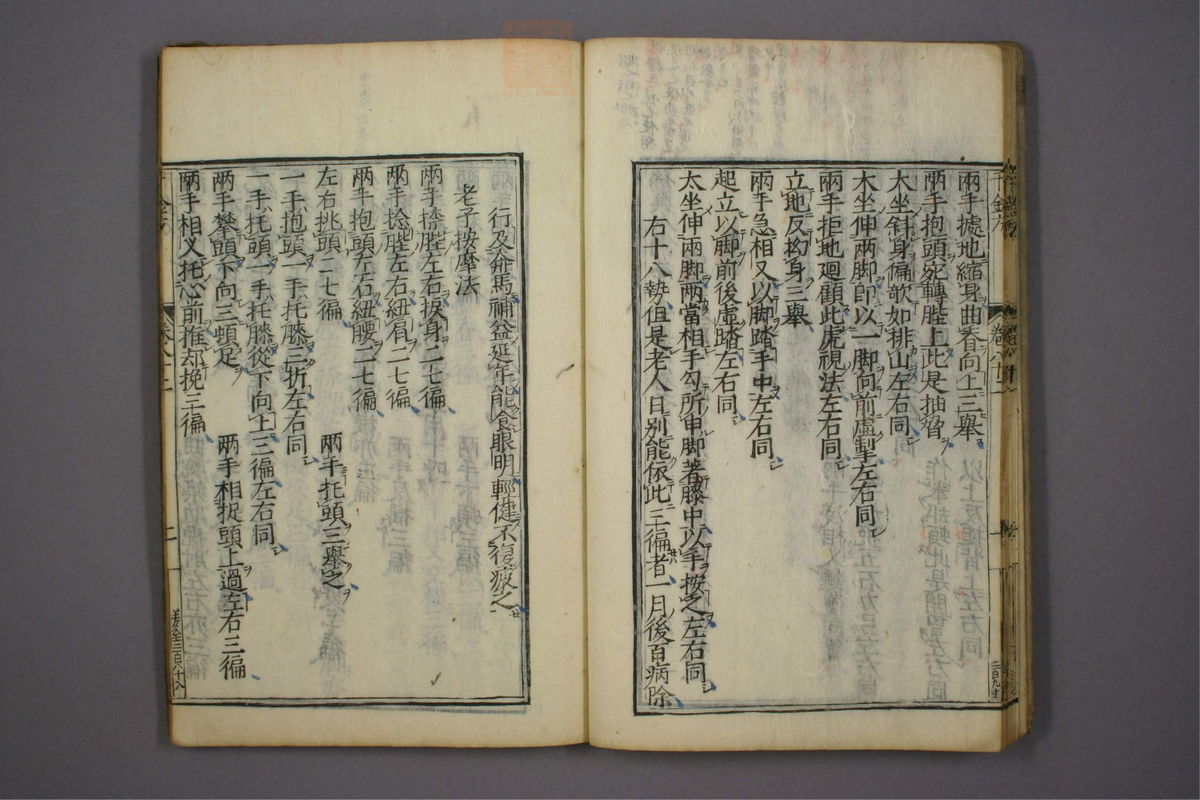 兩手據地縮身曲脊向上三舉
兩手抱頭宛轉䏶上此是抽脅
大坐斜身偏欹如排山左右同
大坐伸兩脚即以一脚向前虛掣左右同
兩手拒地廻顧此虎視法左右同
立地反拗身三舉
兩手急相叉以脚踏手中左右同
起立以脚前後虛踏左右同
大坐伸兩脚兩當相手勾所申脚著膝中以手按之左右同
右十八勢但是老人日別能依此三徧者一月後百病除
行及奔馬補益延年能食眼明輕健不復疲乏
老子按摩法
兩手捺䏶左右捩身二七徧
兩手捻䏶左右紐肩二七徧
兩手抱頭左右紐腰二七徧
左右挑頭二七徧 兩手托頭三舉之
一手抱頭一手托膝三折左右同
一手托頭一手托膝從下向上三徧左右同
兩手攀頭下向三頓足 兩手相捉頭上過左右三徧
兩手相叉托心前推却挽三徧